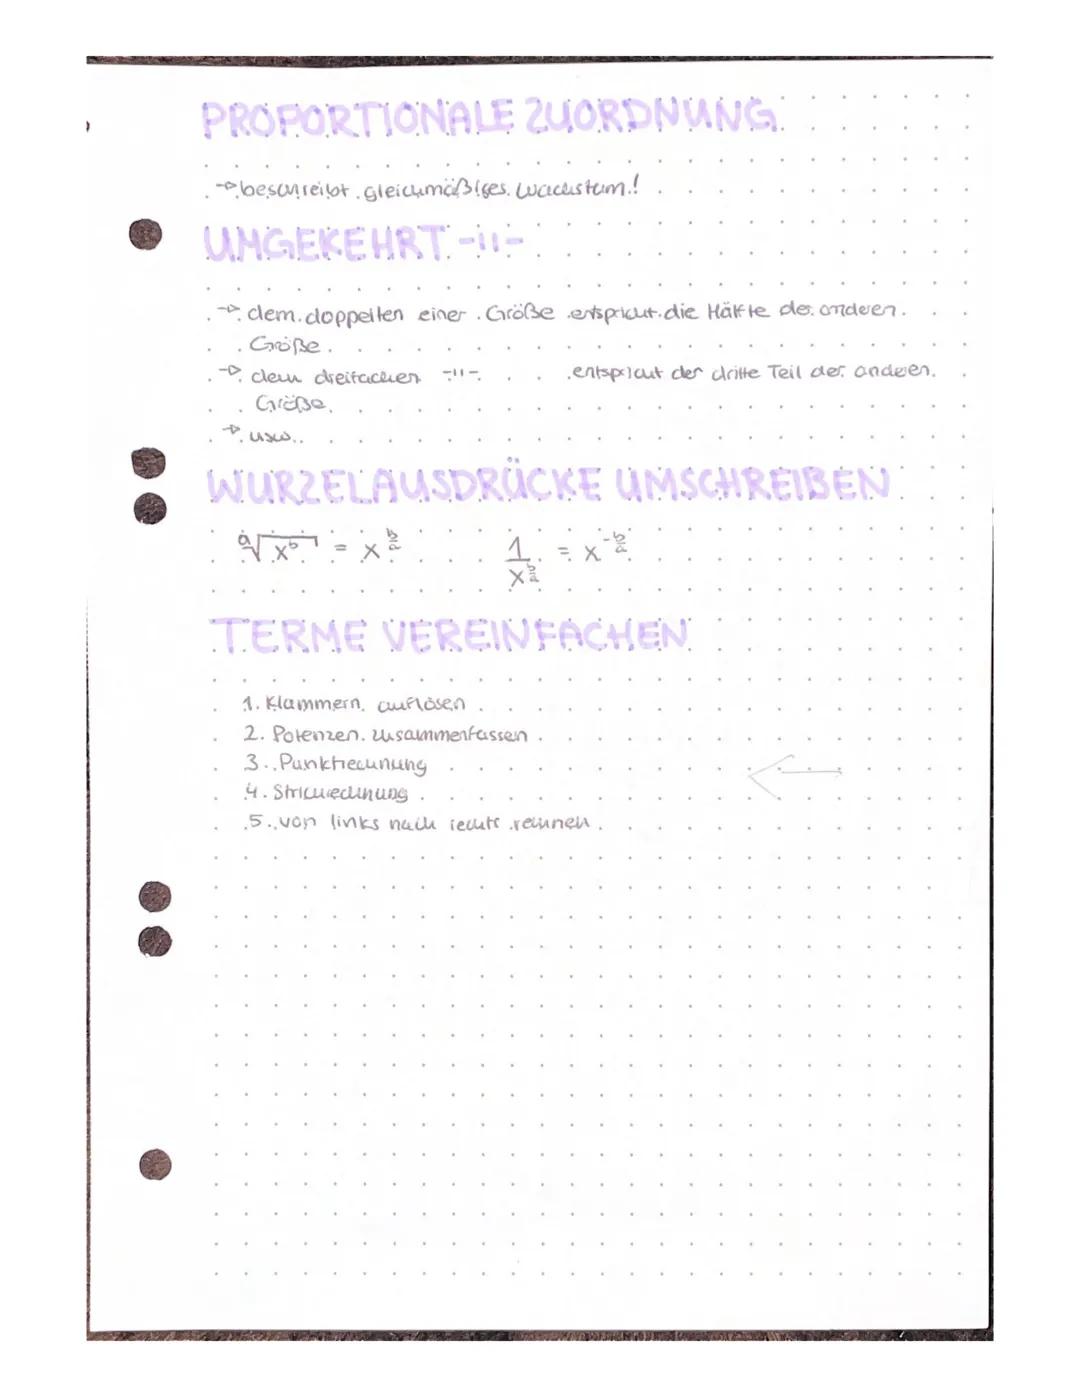 PROPORTIONALE ZUORDNUNG
→ beschreibt gleichmäßiges Wachstum!
UMGEKEHRT -11-
→ dem doppelten einer Größe entspricht die Hälfte der anderen
Größe.
→ dem dreifachen -11- entspricht der dritte Teil der anderen
Größe.
→ usw..
WURZELAUSDRÜCKE UMSCHREIBEN
ᵃ√(x^b) = x^(b/a)   1/(x^(b/a)) = x^(-b/a)
TERME VEREINFACHEN
1. Klammern auflösen
2. Potenzen zusammenfassen
3. Punktrechnung
4. Strichrechnung
5. von links nach rechts rechnen